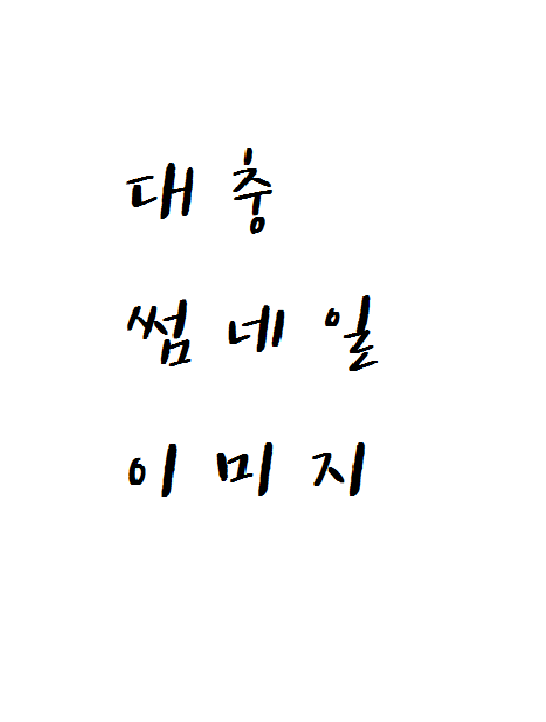 대충
썸네일
이미지